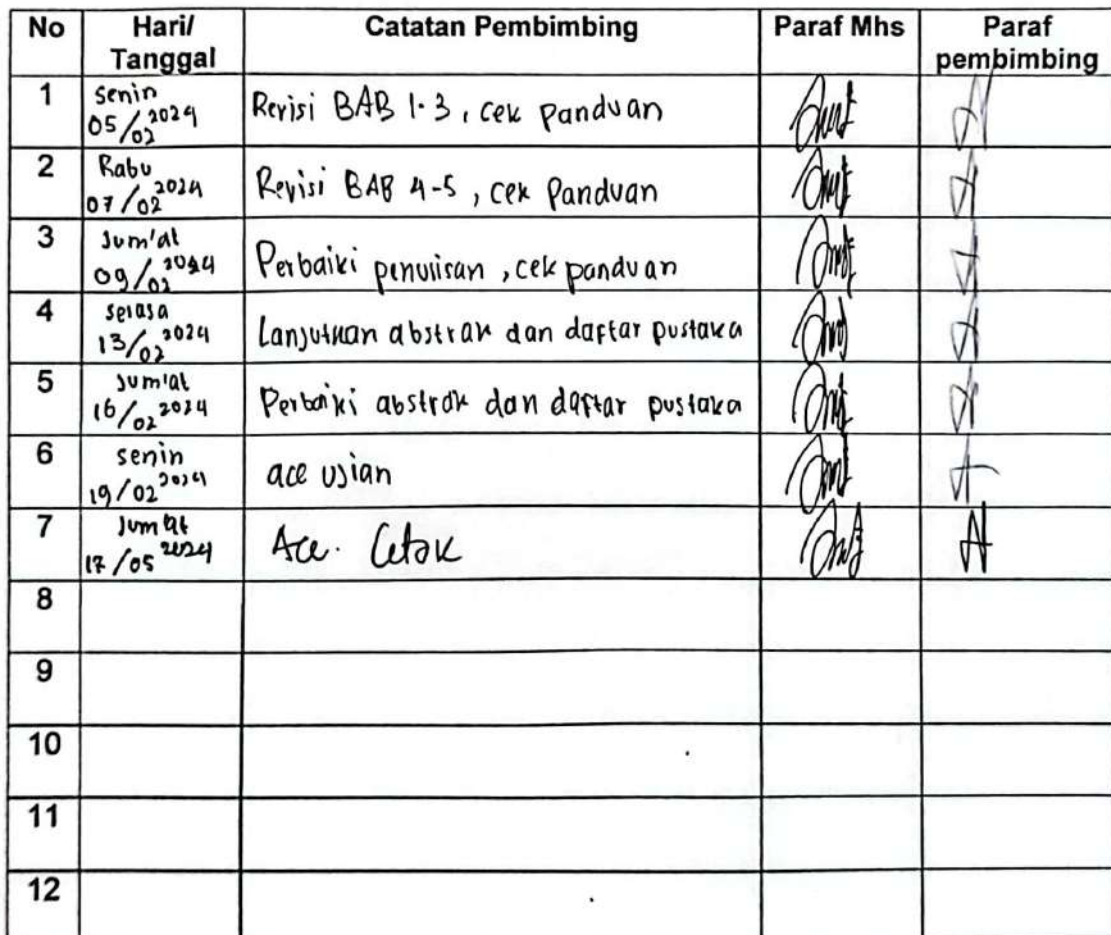 No Hari/ Tanggal Catatan Pembimbing Paraf Mhs Paraf pembimbing
1 Senin 05/02 2024 Revisi BAB 1-3, cek panduan
2 Rabu 07/02 2024 Revisi BAB 4-5, cek Panduan
3 Jum'at 09/02 2024 Perbaiki penulisan, cek panduan
4 selasa 13/02 2024 Lanjutkan abstrak dan daftar pustaka
5 Jum'at 16/02 2024 Perbaiki abstrak dan daftar pustaka
6 senin 19/02 2024 acc ujian
7 Jum'at 17/05 2024 Acc. Cetak
8
9
10
11
12